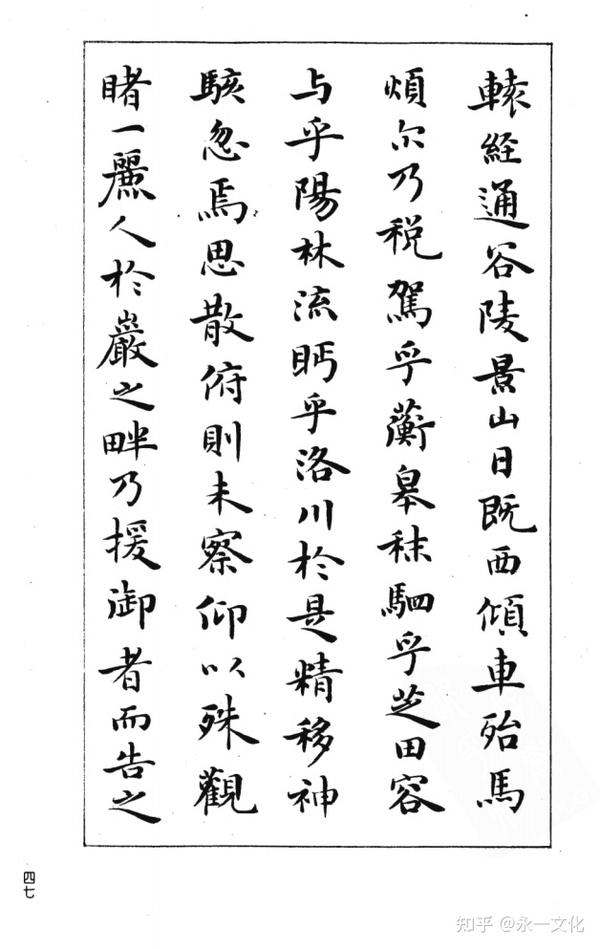 轅經通谷陵景山日既西傾車殆馬
煩尔乃税駕乎蘅皋秣駟乎芝田容
与乎陽林流眄乎洛川於是精移神
駭忽焉思散俯則未察仰以殊觀
睹一麗人於巖之畔乃援御者而告之
四七
知乎 @永一文化